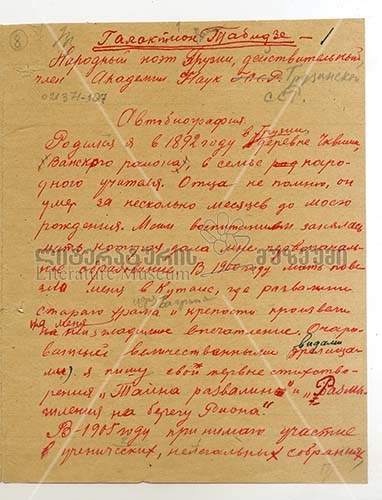 8
Галактион Табидзе — 1
Народный поэт Грузии, действительный
член Академии Наук Грузинской
С.С.Р.
021371-107
Автобиография.
Родился я в 1892 году в Грузии, в деревне Чквиши,
Ванского района, в семье народ-
ного учителя. Отца не помню, он
умер за несколько месяцев до моего
рождения. Моим воспитанием занялась
мать, которая дала мне первоначаль-
ное образование. В 1900 году мать повез-
ла меня в Кутаис, где развалины
старого храма и крепости произвели
на меня впечатление. Очаро-
ванный величественными видами
я пишу свои первые стихотво-
рения „Тайна развалин" и „Размы-
шления на берегу Риона."
В 1905 году принимаю участие
в ученических, нелегальных собраниях
ლიტერატურის მუზეუმი
Literature Museum